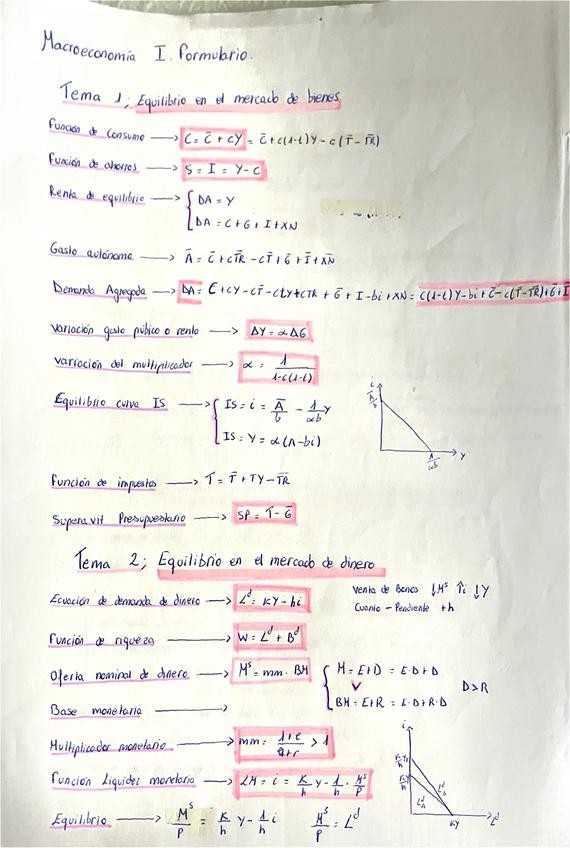 Macroeconomía I. Formulario.
Tema 1; Equilibrio en el mercado de bienes
Función de Consumo → C = C̄ + cY = C̄ + c(1-t)Y - c(T̄ - TR̄)
Función de ahorros → S = I = Y - C
Renta de equilibrio → { DA = Y
DA = C + G + I + XN
Gasto autónomo → Ā = C̄ + cTR̄ - cT̄ + Ḡ + Ī + XN̄
Demanda Agregada → DA = C + cY - cT̄ - ctY + cTR + Ḡ + I - bi + XN = c(1-t)Y - bi + C̄ - c(T̄ - TR̄) + Ḡ + Ī
Variación gasto púbico o renta → ΔY = αΔG
Variación del multiplicador → α = 1 / 1-c(1-t)
Equilibrio curva IS → { IS = i = Ā/b - 1/αb Y
IS = Y = α(A - bi)
i
Ā/b
Y
Función de impuestos → T = T̄ + TY - TR̄
Superavit Presupuestario → SP = T - Ḡ
Tema 2; Equilibrio en el mercado de dinero
Venta de Bonos ↓Mˢ ↑i ↓Y
Ecuación de demanda de dinero → Lᵈ = KY - hi
Cuanto - Pendiente + h
Función de riqueza → W = Lᵈ + Bᵈ
Oferta nominal de dinero → Mˢ = mm · BM { M = E + D = E·D + D
D > R
BM = E + R = E·D + R·D
Base monetaria →
Multiplicador monetario → mm = 1+e / e+r > 1
i
Función Liquidez monetaria → LM = i = K/h Y - 1/h · Mˢ/P
Equilibrio → Mˢ/P = K/h Y - 1/h i Mˢ/P = Lᵈ
KY
Lᵈ